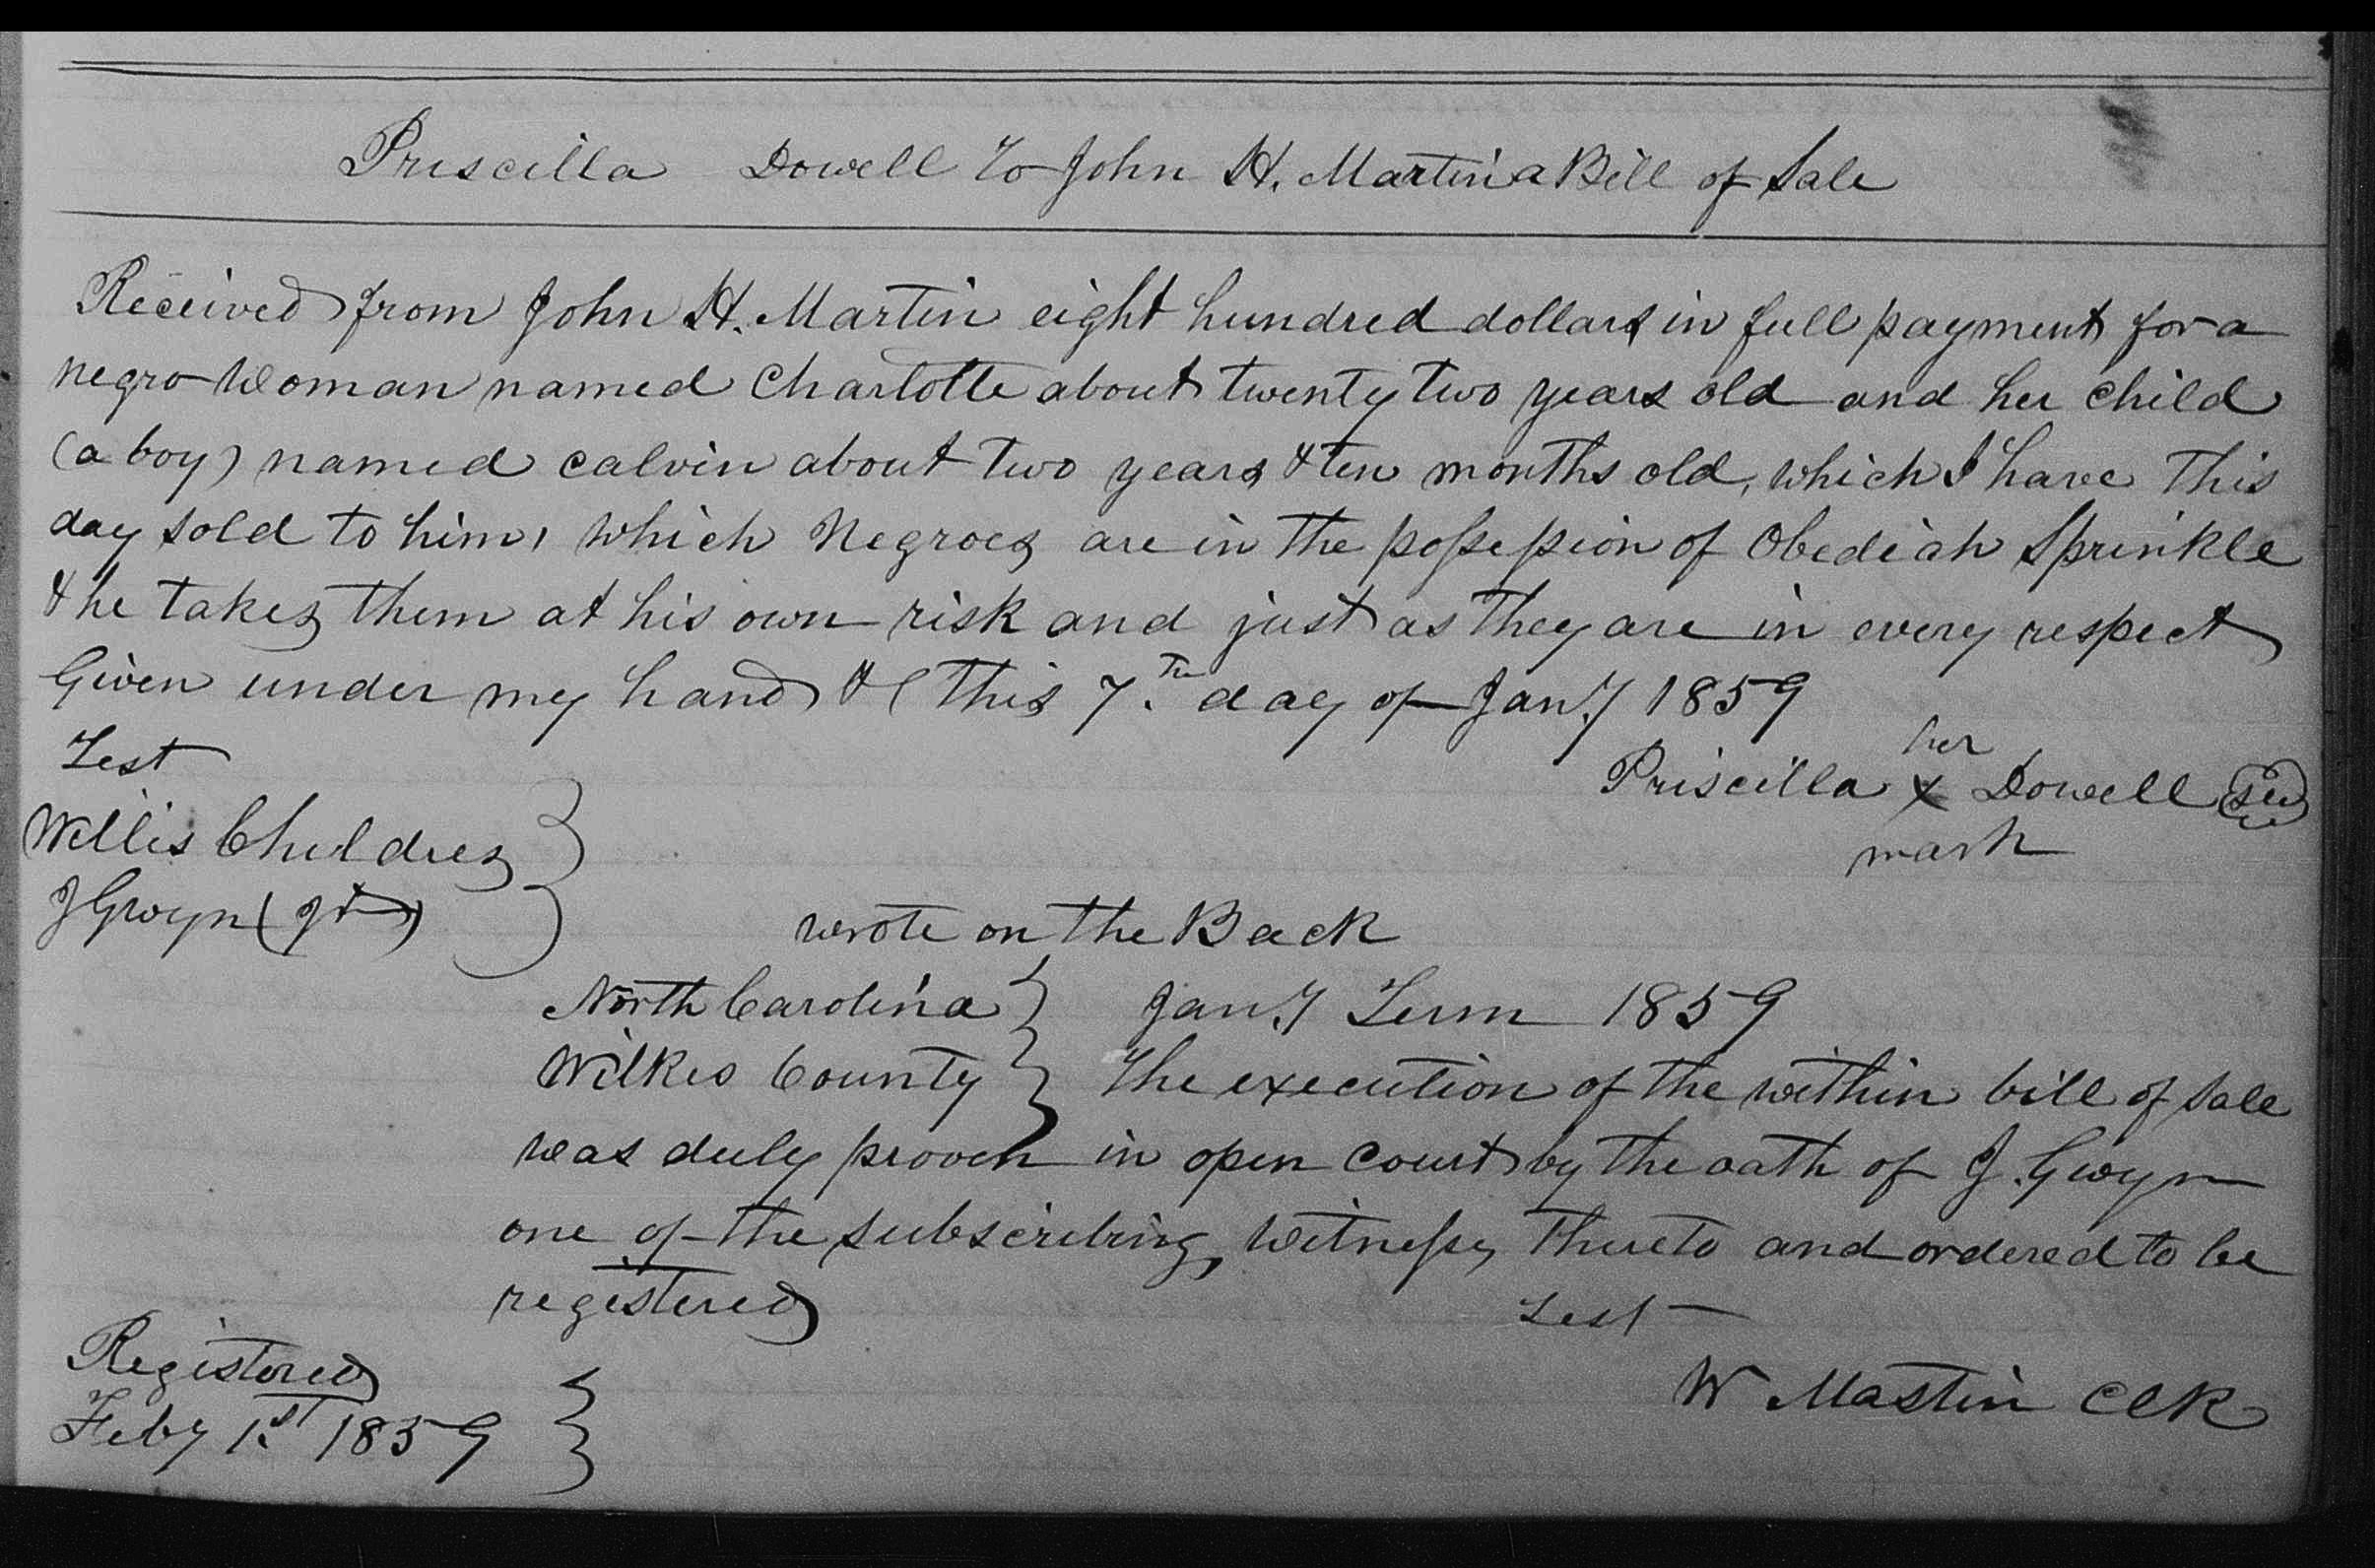 Priscilla Dowell to John H. Martin a Bill of Sale
Received from John H. Martin eight hundred dollars in full payment for a
negro Woman named Charlotte about twenty two years old and her child
(a boy) named calvin about two years & ten months old, which I have this
day sold to him, which Negroes are in the possession of Obediah Sprinkle
& he takes them at his own risk and just as they are in every respect
Given under my hand & ( this 7.th day of Jany 1859
Test
her
Priscilla x Dowell
mark
Willis Childres
J Gwyn
wrote on the Back
North Carolina } Jany Term 1859
Wilkes County } The execution of the within bill of sale
was duly proven in open court by the oath of J. Gwyn
one of the subscribing witness thereto and ordered to be
registered
Test
W Mastin Clk
Registered
Feby 1st 1859 }